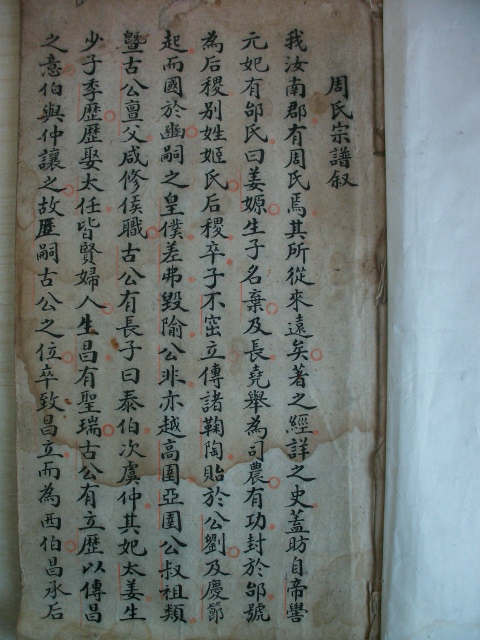 周氏宗譜叙
我汝南郡有周氏焉其所從來遠矣著之經詳之史蓋昉自帝嚳
元妃有邰氏曰姜嫄生子名棄及長堯舉為司農有功封於邰號
為后稷別姓姬氏后稷卒子不窋立傳諸鞠陶貽於公劉及慶節
起而國於豳嗣之皇僕差弗毀隃公非亦越高圉亞圉公叔祖類
曁古公亶父咸修侯職古公有長子曰泰伯次虞仲其妃太姜生
少子季歷歷娶太任皆賢婦人生昌有聖瑞古公有立歷以傳昌
之意伯與仲讓之故歷嗣古公之位卒致昌立而為西伯昌承后